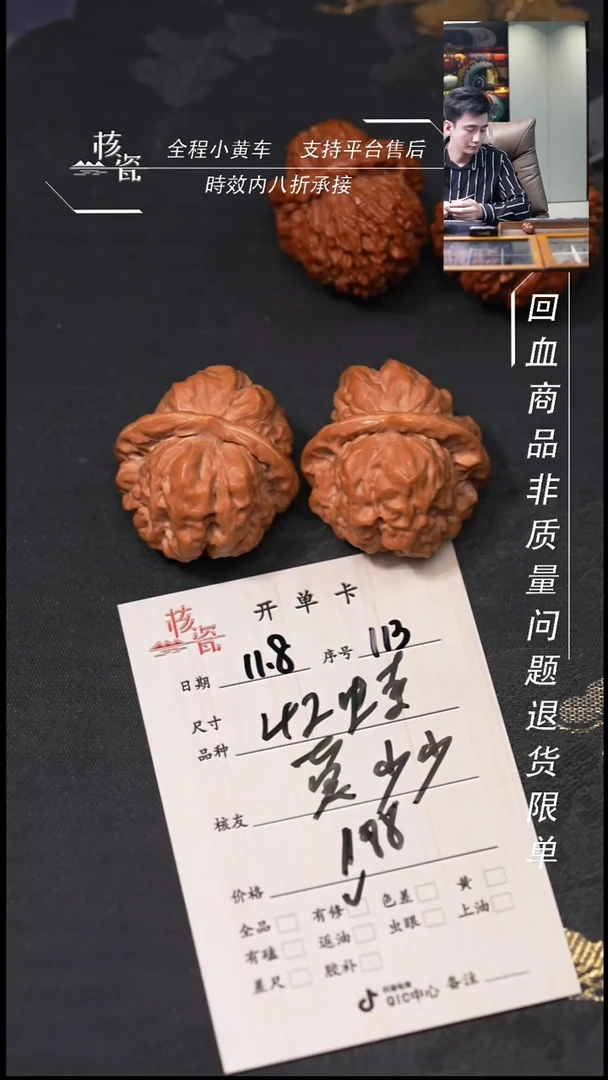 核瓷
全程小黄车 支持平台售后
時效内八折承接
回血商品非质量问题退货限单
核瓷
开单卡
日期 11.8 序号 113
尺寸 42
品种
核友
价格 198
全品 有修 ✓ 色差 黄
有磕 返油 虫眼 上油
差尺 胶补
QIC中心 备注